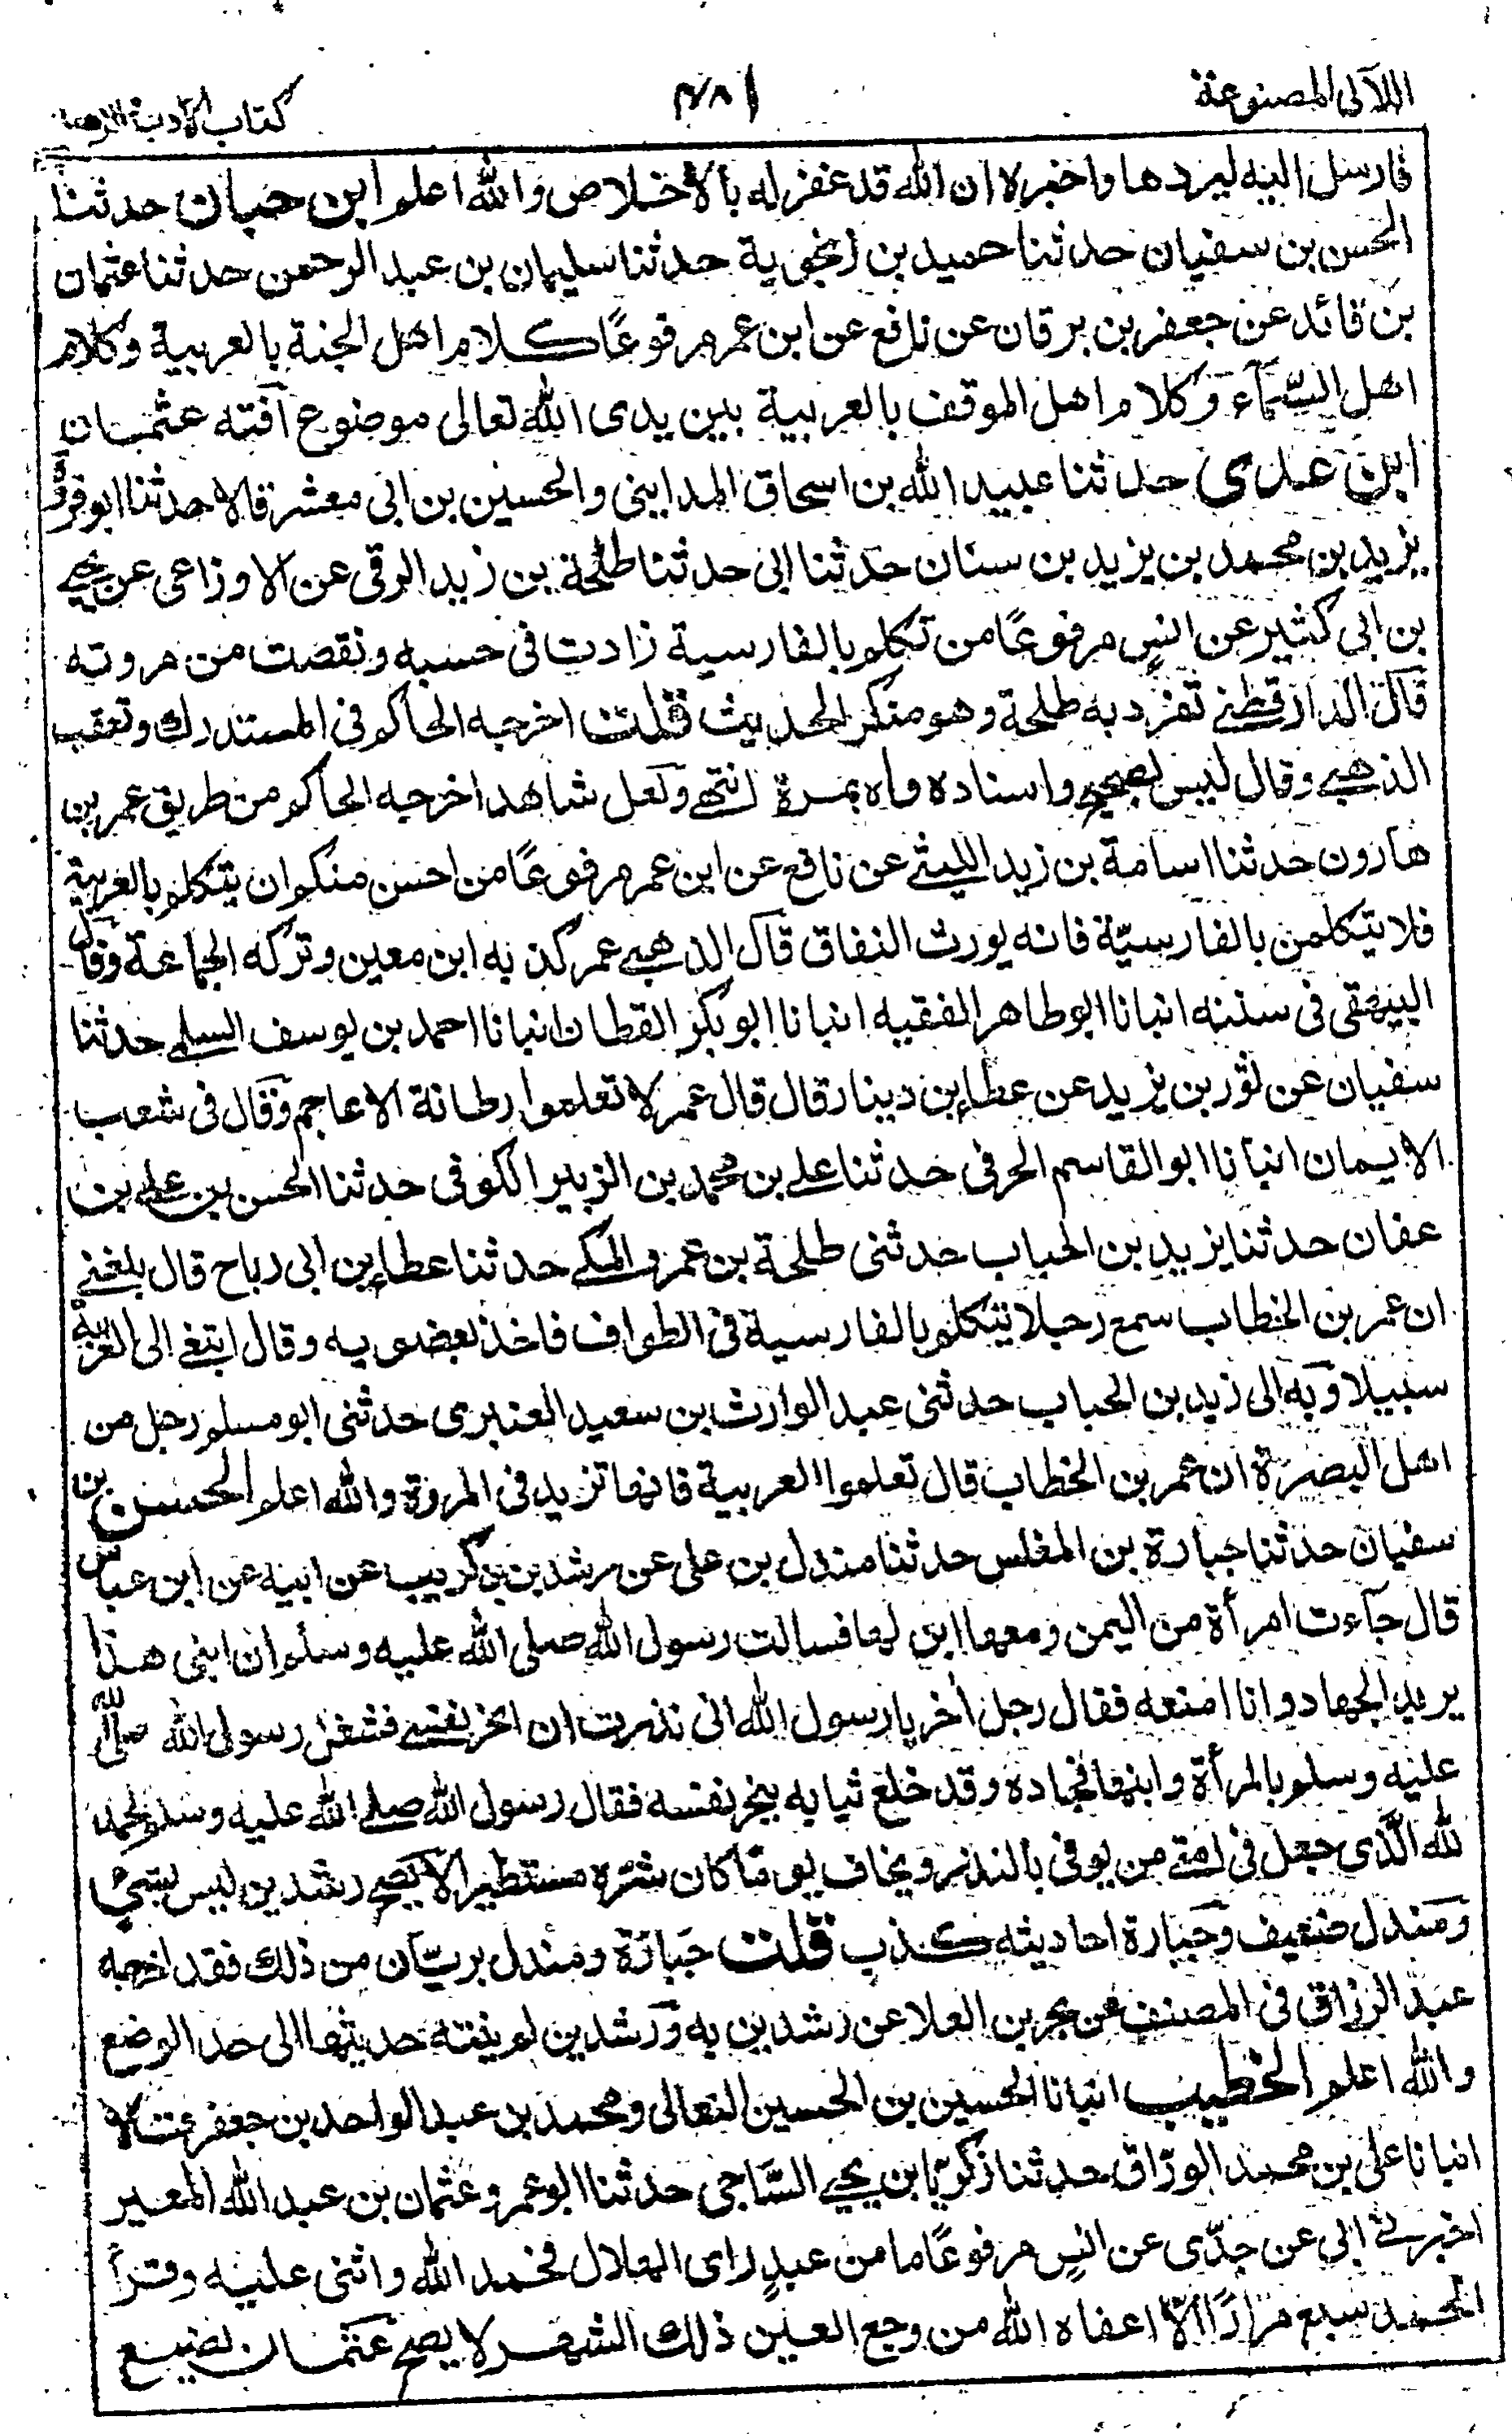 اللآلى المصنوعة
١٤٨
كتاب الادب والزهد
فارسل اليه ليردها واخبره ان الله قد غفر له بالاخلاص والله اعلم ابن حبان حدثنا
الحسن بن سفيان حدثنا حميد بن زنجوية حدثنا سليمان بن عبد الرحمن حدثنا عثمان
بن قائد عن جعفر بن برقان عن نافع عن ابن عمر مرفوعًا كلام اهل الجنة بالعربية وكلام
اهل السّمآء وكلام اهل الموقف بالعربية بين يدى الله تعالى موضوع آفته عثمان
ابن عدى حدثنا عبيد الله بن اسحاق المداينى والحسين بن ابى معشر قالا حدثنا ابو فروة
يزيد بن محمد بن يزيد بن سنان حدثنا ابى حدثنا طلحة بن زيد الرقى عن الاوزاعى عن يحيى
بن ابى كثير عن انسٍ مرفوعًا من تكلم بالفارسية زادت فى حسبه ونقصت من مروته
قال الدارقطنى تفرد به طلحة وهو منكر الحديث قلت اخرجه الحاكم فى المستدرك وتعقب
الذهبى وقال ليس بصحيح واسناده واه بمرة انتهى ولعل شاهدا اخرجه الحاكم من طريق عمر بن
هارون حدثنا اسامة بن زيد الليثى عن نافع عن ابن عمر مرفوعًا من احسن منكم ان يتكلم بالعربية
فلا يتكلمن بالفارسيّة فانه يورث النفاق قال الذهبى عمر كذبه ابن معين وتركه الجماعة وقال
البيهقى فى سننه انبانا ابو طاهر الفقيه انبانا ابو بكر القطان انبانا احمد بن يوسف السلمى حدثنا
سفيان عن ثور بن يزيد عن عطاء بن دينار قال قال عمر لا تعلموا رطانة الاعاجم وقال فى شعب
الايمان انبانا ابو القاسم الحرفى حدثنا على بن محمد بن الزبير الكوفى حدثنا الحسن بن على بن
عفان حدثنا يزيد بن الحباب حدثنى طلحة بن عمرو المكى حدثنا عطاء بن ابى رباح قال بلغنى
ان عمر بن الخطاب سمع رجلا يتكلم بالفارسية فى الطواف فاخذ بعضويه وقال ابتغ الى العربية
سبيلا وبه الى زيد بن الحباب حدثنى عبد الوارث بن سعيد العنبرى حدثنى ابو مسلم رجل من
اهل البصرة ان عمر بن الخطاب قال تعلموا العربية فانها تزيد فى المروة والله اعلم الحسن بن
سفيان حدثنا جبارة بن المغلس حدثنا مندل بن على عن رشدين بن كريب عن ابيه عن ابن عباس
قال جآءت امرأة من اليمن ومعها ابن لها فسالت رسول الله صلى الله عليه وسلم ان ابنى هذا
يريد الجهاد وانا امنعه فقال رجل أخر يا رسول الله انى نذرت ان انحر نفسى فشغل رسول الله صلى الله
عليه وسلم بالمرأة وابنها فجاده وقد خلع ثيابه ينحر نفسه فقال رسول الله صلى الله عليه وسلم الحمد
لله الّذى جعل فى امتى من يوفى بالنذر ويخاف يوما كان شرّه مستطيرا لا يصح رشدين ليس بشئ
ومندل ضعيف وجبارة احاديثه كذب قلت جبارة ومندل بريّان من ذلك فقد اخرجه
عبد الرزاق فى المصنف عن يحيى بن العلا عن رشدين به ورشدين لم ينته حديثها الى حد الوضع
والله اعلم الخطيب انبانا الحسين بن الحسين النعالى ومحمد بن عبد الواحد بن جعفر قالا
انبانا على بن محمد الورّاق حدثنا زكريّا بن يحيى السَّاجى حدثنا ابو عمرو عثمان بن عبد الله المعير
اخبرنى ابى عن جدّى عن انسٍ مرفوعًا ما من عبدٍ راى الهلال فحمد الله واثنى عليه وقرأ
الحمد سبع مرارًا الّا اعفاه الله من وجع العين ذلك الشهر لا يصح عثمان يضع